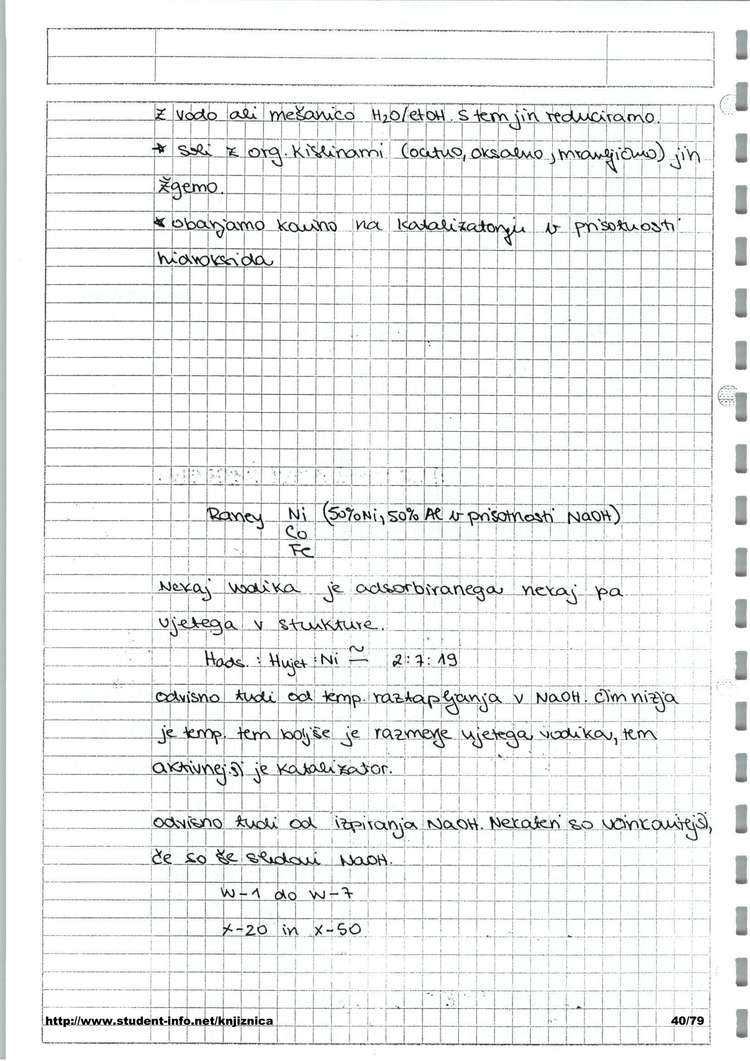 z vodo ali mešanico H₂O/etOH. S tem jih reduciramo.
* Soli z org. kislinami (ocetno, oksalno, mravljično) jih
žgemo.
* obarjamo kovino na katalizatorju v prisotnosti
hidroksida
Raney Ni (50%Ni, 50% Al v prisotnosti NaOH)
Co
Fe
Nekaj vodika je adsorbiranega nekaj pa
ujetega v strukture.
Hads. : Hujet : Ni ≃ 2:7:19
odvisno tudi od temp. raztapljanja v NaOH. čim nižja
je temp. tem boljše je razmerje ujetega vodika, tem
aktivnejši je katalizator.
odvisno tudi od izpiranja NaOH. Nekateri so učinkovitejši,
če so še sledovi NaOH.
W-1 do W-7
X-20 in X-50
http://www.student-info.net/knjiznica 40/79